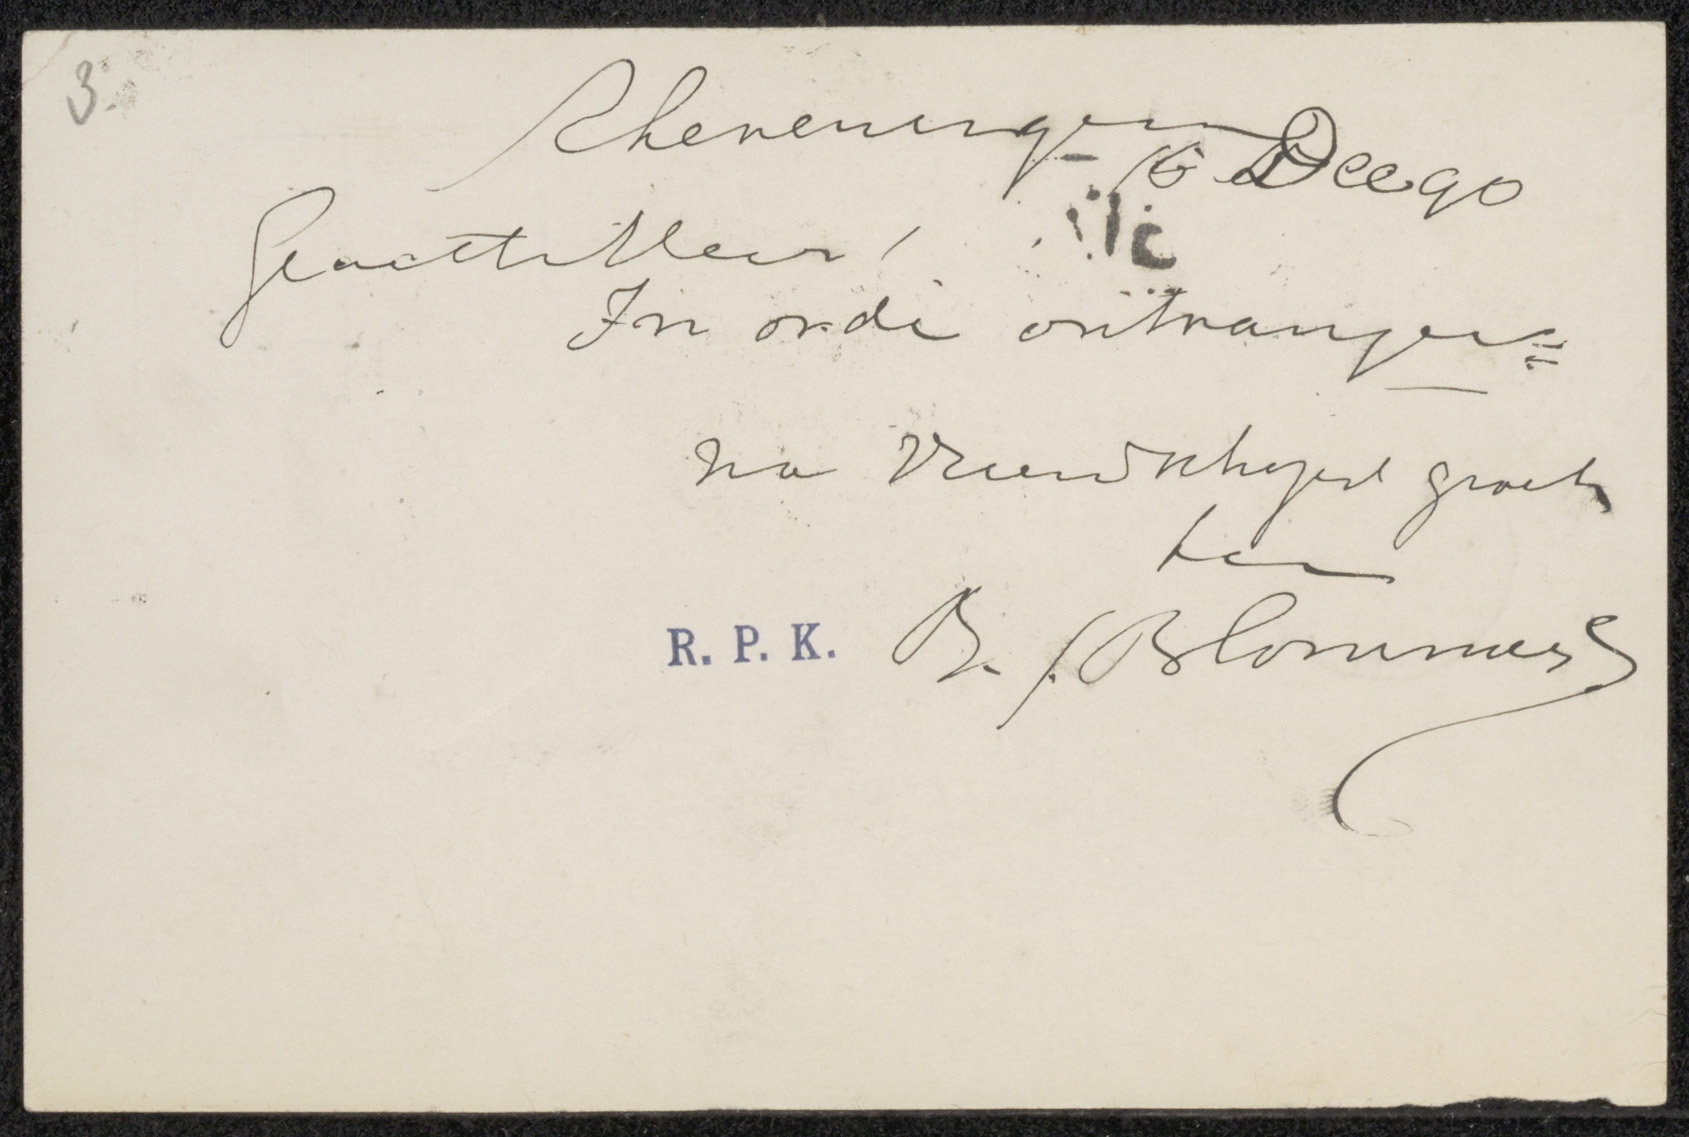 3.
Scheveningen
16 Dec 90
Geachte Heer!
In orde ontvangen
na vriendschapd groet
B. J. Blommers
R. P. K.